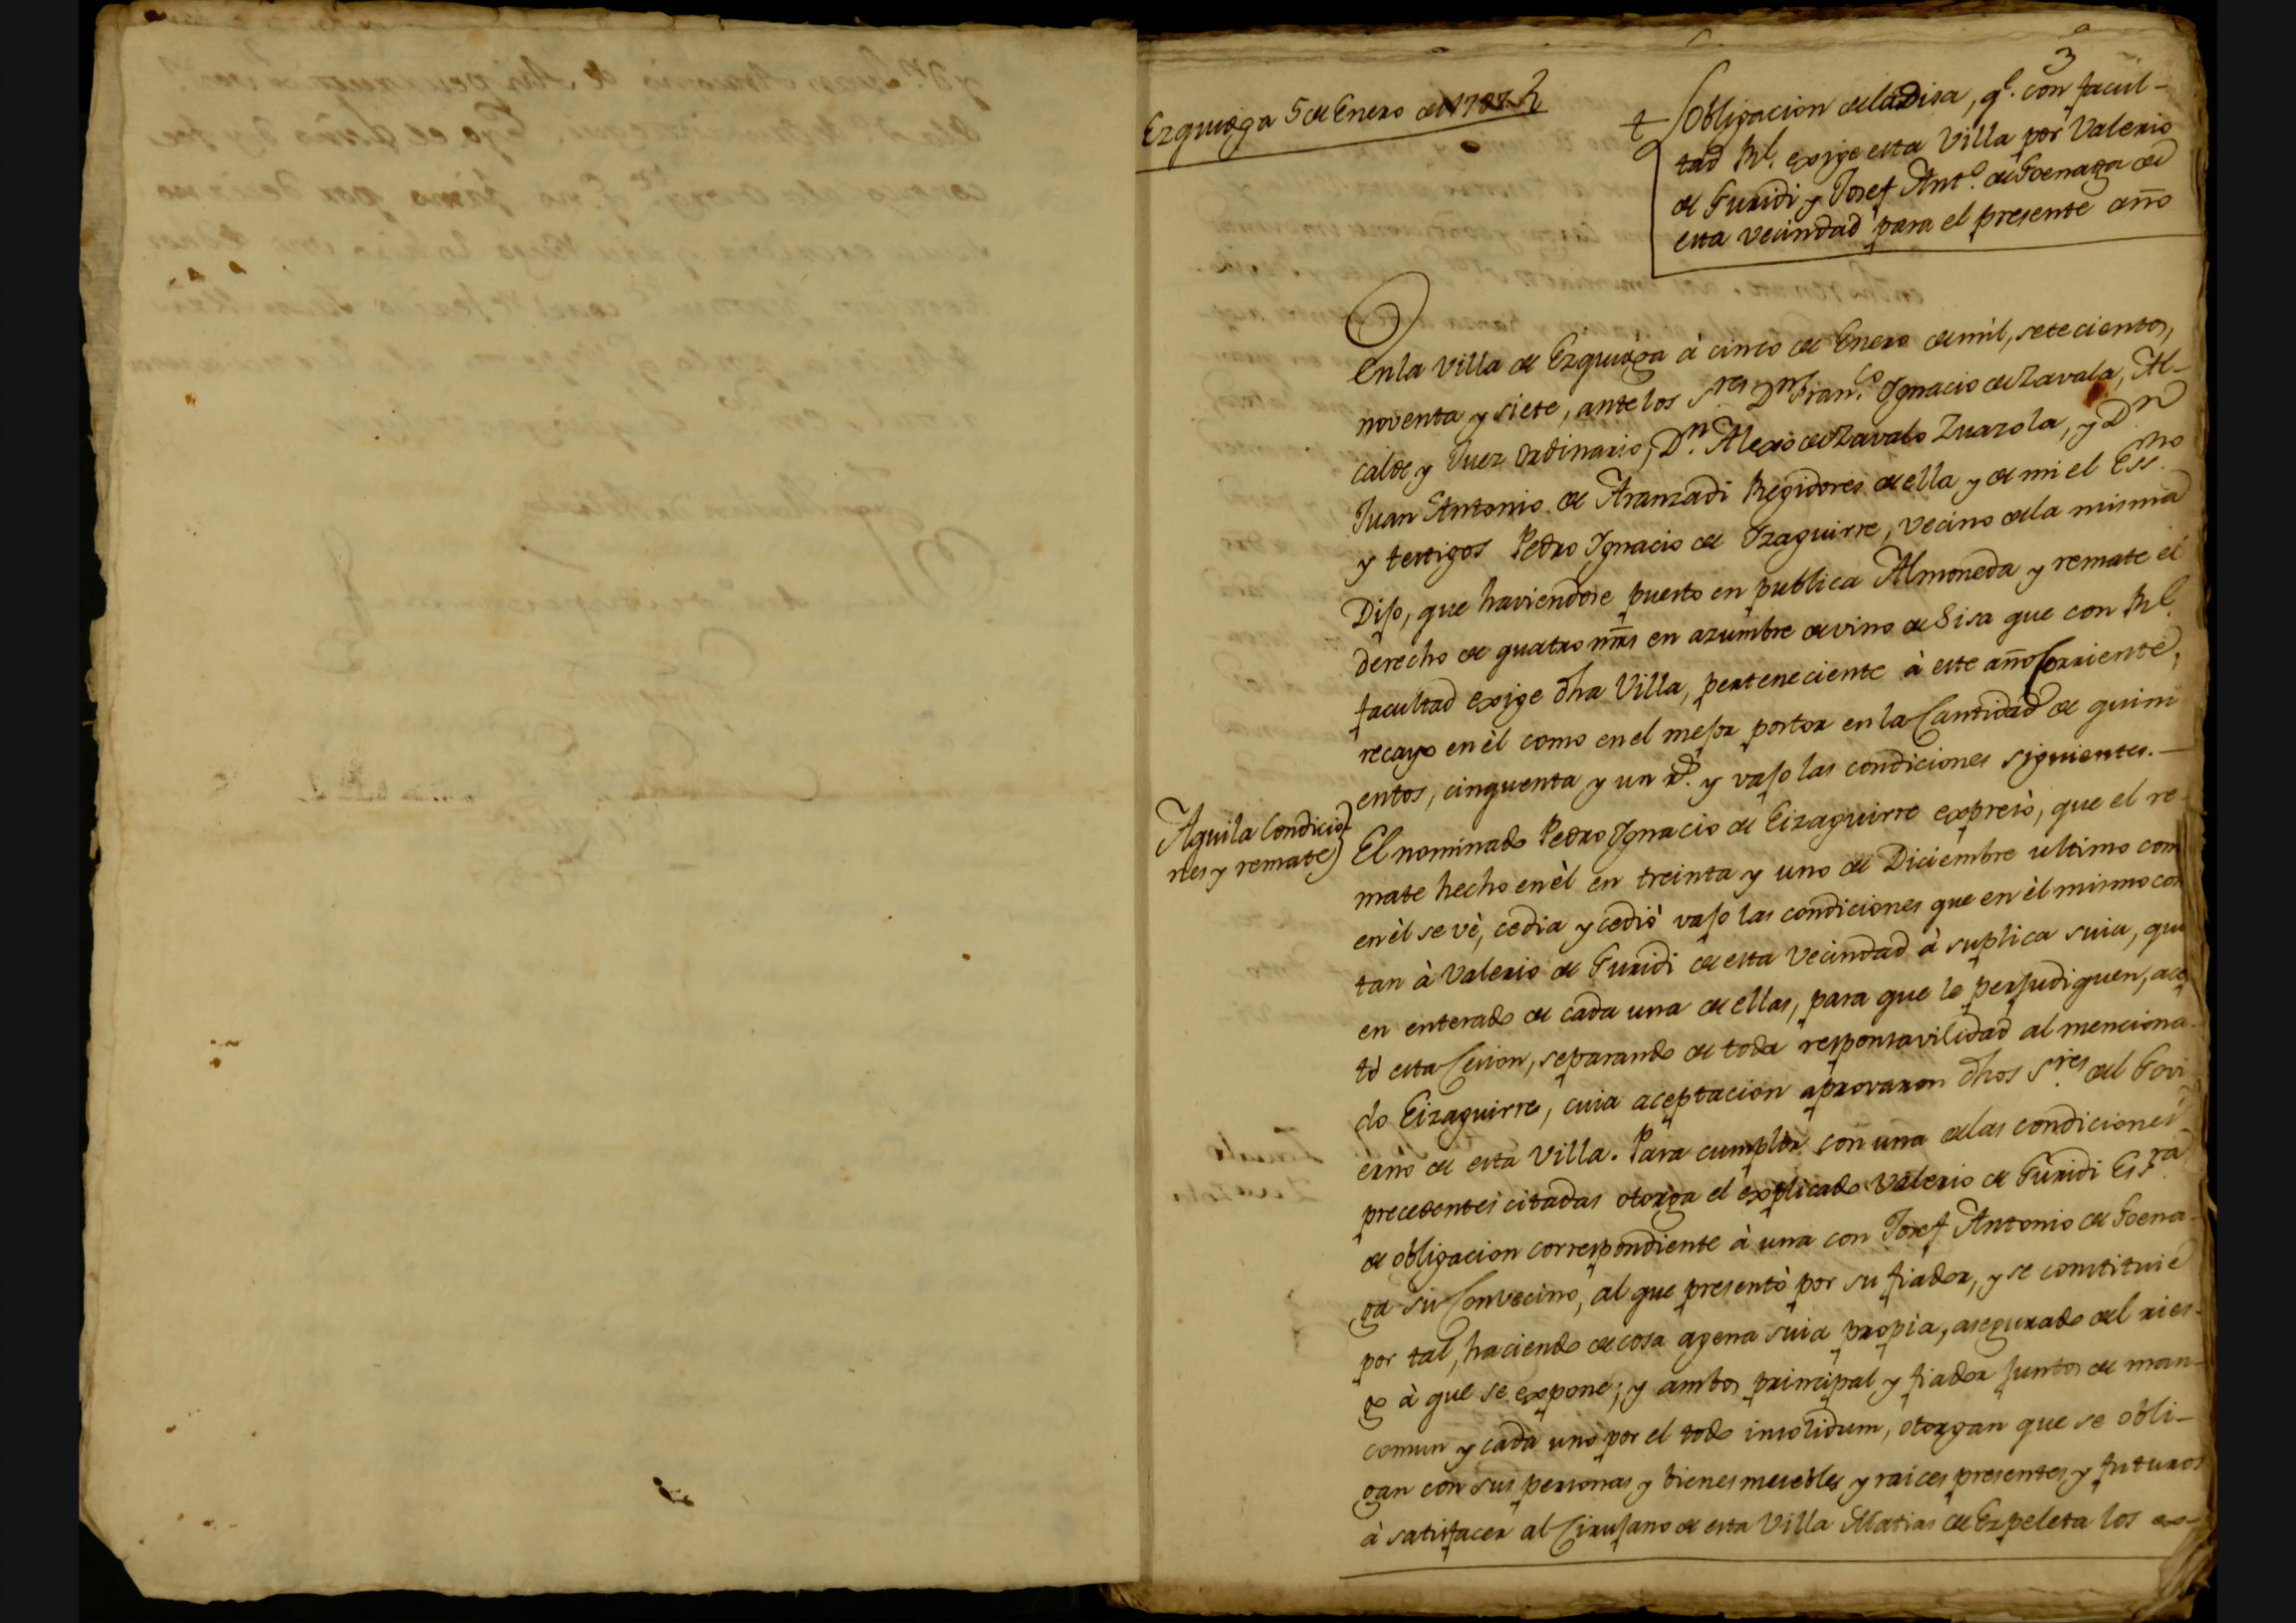 3
Ezquioga 5 de Enero de 1797
Obligacion de la Sisa, q.e con facul-
tad Rl. exige esta Villa por Valerio
de Guridi y Josef Ant.o de Goenaga de
esta vecindad para el presente año
En la Villa de Ezquioga à cinco de Enero de mil, setecientos,
noventa y siete, ante los S.res D.n Fran.co Ignacio de Zavala, Al-
calde y Juez Ordinario, D.n Alexo de Zavalo Zuazola, y D.n
Juan Antonio de Aranzadi Regidores de ella y de mi el Ess.no
y testigos Pedro Ignacio de Yzaguirre, vecino de la misma
Dijo, que haviendose puesto en publica Almoneda y remate el
derecho de quatro mrs en azumbre de vino de Sisa que con Rl.
facultad exige dha Villa, perteneciente à este año Corriente,
recayo en èl como en el mejor postor en la Cantidad de quini
entos, cinquenta y un r.s y vajo las condiciones siguientes.—
Aqui la Condicio-
nes y remate
El nominado Pedro Ignacio de Eizaguirre expresò, que el re-
mate hecho en èl en treinta y uno de Diciembre ultimo com
en èl se vè, cedia y cediò vajo las condiciones que en èl mismo con
tan à Valerio de Guridi de esta Vecindad à suplica suia, qui
en enterado de cada una de ellas, para que le perjudiquen, acep
tò esta Cesion, separando de toda responsavilidad al menciona-
do Eizaguirre, cuia aceptacion aprovaron dhos S.res del Govi
erno de esta Villa. Para cumplir con una de las condiciones
precedentes citadas otorga el explicado Valerio de Guridi Ess.ra
de obligacion correspondiente à una con Josef Antonio de Goena-
ga su Convecino, al que presentò por su fiador, y se constituie
por tal, haciendo de cosa agena suia propia, asegurado del ries-
go à que se expone; y ambos principal y fiador juntos de man-
comun y cada uno por el todo insolidum, otorgan que se obli-
gan con sus personas y bienes muebles y raices presentes y futuros
à satisfacer al Cirujano de esta Villa Matias de Ezpeleta los ex-